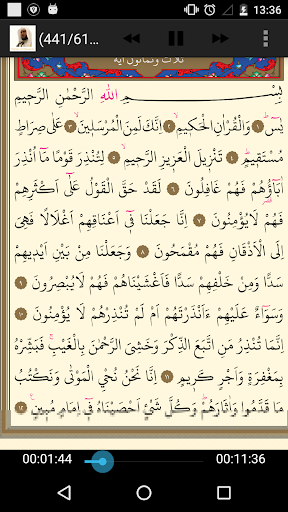 13:36
(441/61...
ثلاث وثمانون آية
بِسْمِ اللهِ الرَّحْمٰنِ الرَّحِيمِ
يٰسٓ ۚ ١ وَالْقُرْاٰنِ الْحَكِيمِ ۙ ٢ اِنَّكَ لَمِنَ الْمُرْسَلِينَ ۙ ٣ عَلٰى صِرَاطٍ
مُسْتَقِيمٍ ۜ ٤ تَنْزِيلَ الْعَزِيزِ الرَّحِيمِ ۙ ٥ لِتُنْذِرَ قَوْمًا مَٓا اُنْذِرَ
اٰبَٓاؤُ۬هُمْ فَهُمْ غَافِلُونَ ٦ لَقَدْ حَقَّ الْقَوْلُ عَلٰٓى اَكْثَرِهِمْ
فَهُمْ لَا يُؤْمِنُونَ ٧ اِنَّا جَعَلْنَا ف۪ٓي اَعْنَاقِهِمْ اَغْلَالًا فَهِيَ
اِلَى الْاَذْقَانِ فَهُمْ مُقْمَحُونَ ٨ وَجَعَلْنَا مِنْ بَيْنِ اَيْدِيهِمْ
سَدًّا وَمِنْ خَلْفِهِمْ سَدًّا فَاَغْشَيْنَاهُمْ فَهُمْ لَا يُبْصِرُونَ ٩
وَسَوَٓاءٌ عَلَيْهِمْ ءَاَنْذَرْتَهُمْ اَمْ لَمْ تُنْذِرْهُمْ لَا يُؤْمِنُونَ ١٠
اِنَّمَا تُنْذِرُ مَنِ اتَّبَعَ الذِّكْرَ وَخَشِيَ الرَّحْمٰنَ بِالْغَيْبِ ۚ فَبَشِّرْهُ
بِمَغْفِرَةٍ وَاَجْرٍ كَرِيمٍ ١١ اِنَّا نَحْنُ نُحْيِ الْمَوْتٰى وَنَكْتُبُ
مَا قَدَّمُوا وَاٰثَارَهُمْ ۜ وَكُلَّ شَيْءٍ اَحْصَيْنَاهُ ف۪ٓي اِمَامٍ مُبِينٍ ۟ ١٢
00:01:44 00:11:36